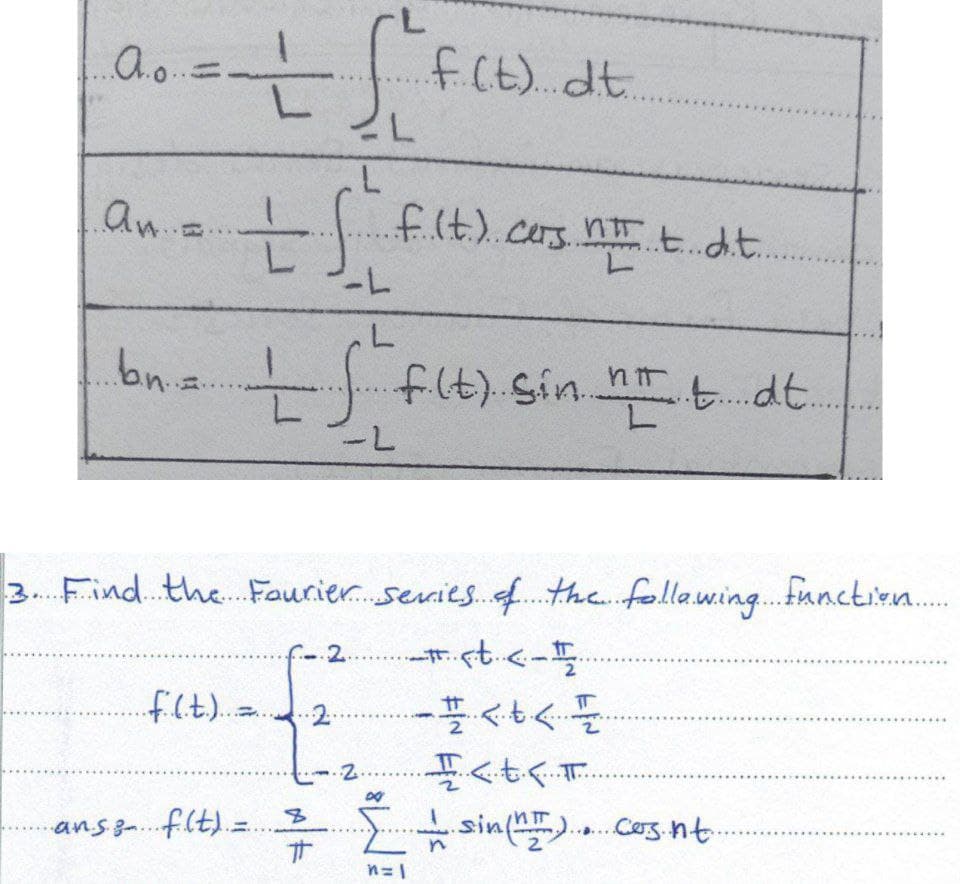 a₀ = 1/L ∫_{-L}^{L} f(t) dt
aₙ = 1/L ∫_{-L}^{L} f(t) cos nπ/L t dt
bₙ = 1/L ∫_{-L}^{L} f(t) sin nπ/L t dt
3. Find the Fourier series of the following function
-2 -π<t<-π/2
f(t) = { 2 -π/2<t<π/2
-2 π/2<t<π
ans:- f(t) = 8/π ∑_{n=1}^{∞} 1/n sin(nπ/2) . cos nt